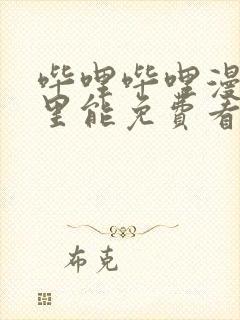 哔哩哔哩漫
里能免费看
布克